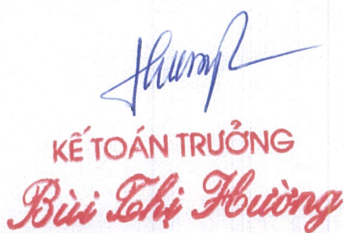 KẾ TOÁN TRƯỞNG
Bùi Thị Hường